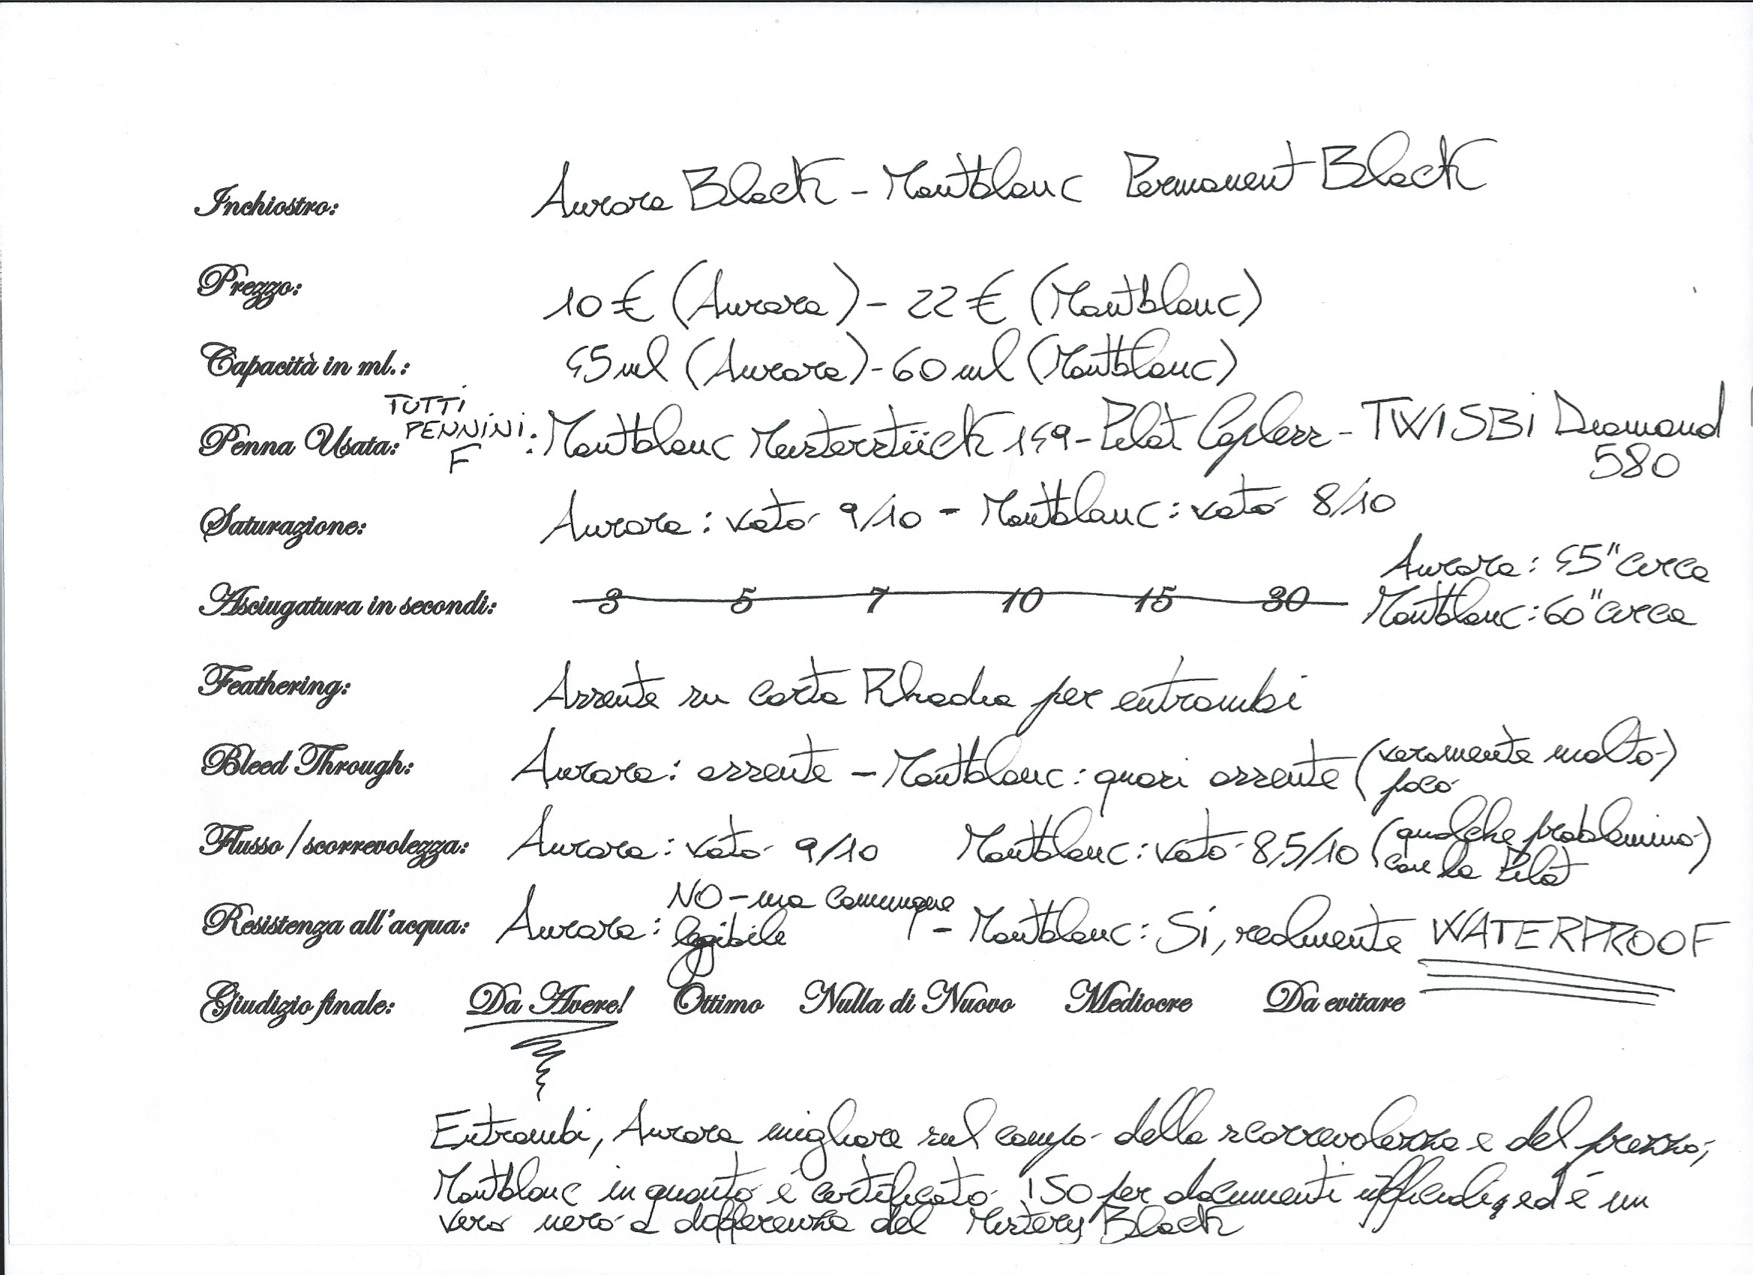 Inchiostro: Aurora Black - Montblanc Permanent Black
Prezzo: 10 € (Aurora) - 22 € (Montblanc)
Capacità in ml.: 45 ml (Aurora) - 60 ml (Montblanc)
Penna Usata: TUTTI PENNINI F : Montblanc Meisterstück 149 - Pilot Capless - TWISBI Diamond 580
Saturazione: Aurora: voto 9/10 - Montblanc: voto 8/10
Asciugatura in secondi: 3 5 7 10 15 30 Aurora: 45" circa
Montblanc: 60" circa
Feathering: Assente su carta Rhodia per entrambi
Bleed Through: Aurora: assente - Montblanc: quasi assente (veramente molto poco)
Flusso / scorrevolezza: Aurora: voto 9/10 Montblanc: voto 8,5/10 (qualche problemino con la Pilot)
Resistenza all'acqua: Aurora: NO - ma comunque leggibile - Montblanc: Si, realmente WATERPROOF
Giudizio finale: Da Avere! Ottimo Nulla di Nuovo Mediocre Da evitare
Entrambi, Aurora migliore sul campo della scorrevolezza e del prezzo;
Montblanc in quanto è certificato ISO per documenti ufficiali, ed è un
vero nero a differenza del Mistery Black